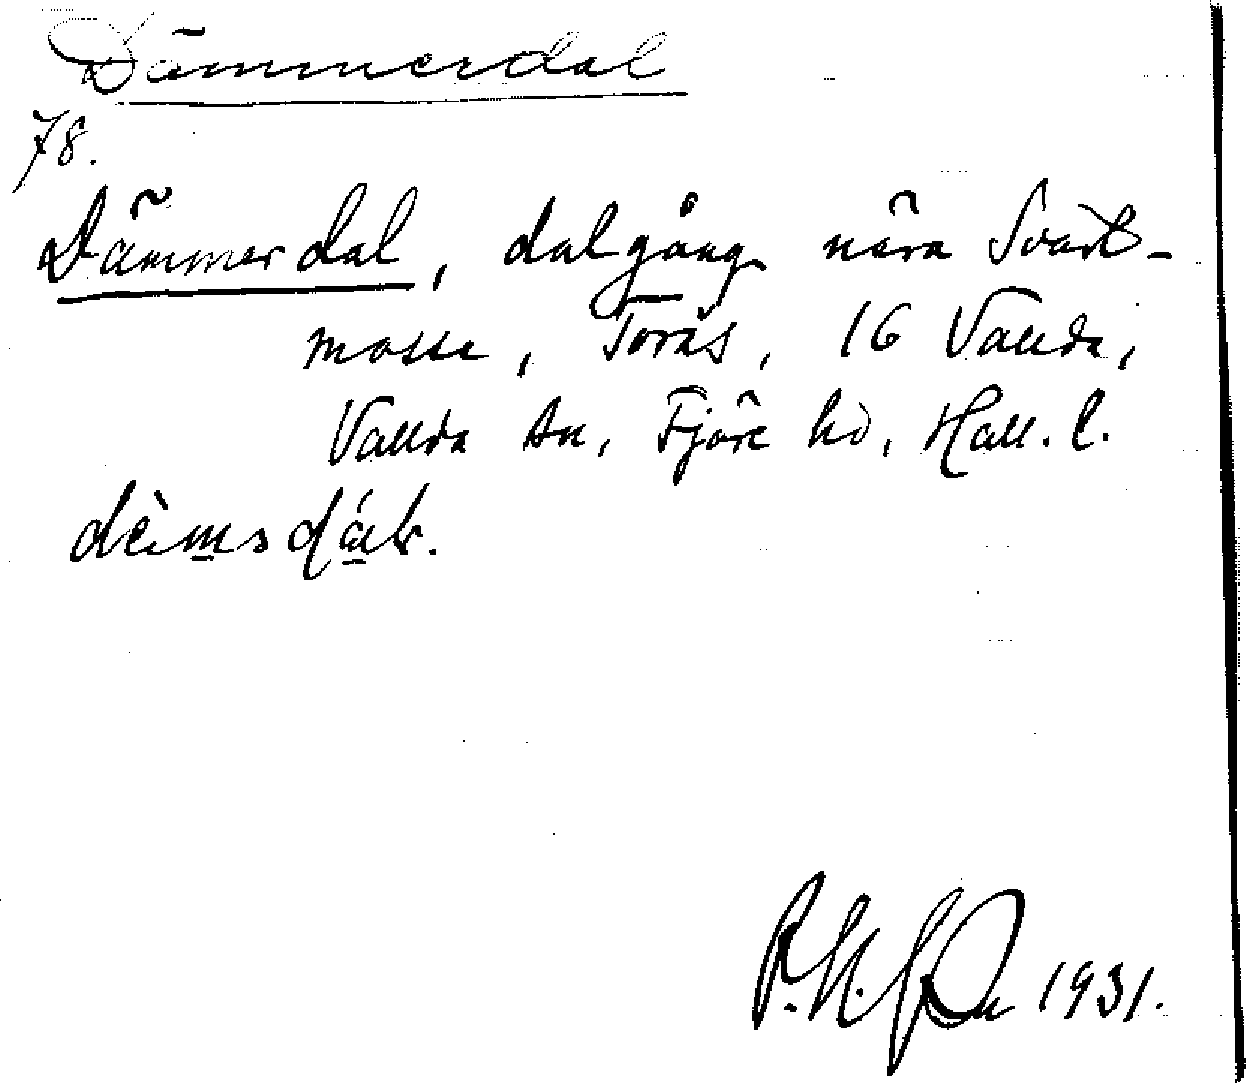 Dämmerdal
78.
Dämmerdal, dalgång nära Svart-
mosse, Torås, 16 Vallda,
Vallda sn, Fjäre hd, Hall. l.
1931.